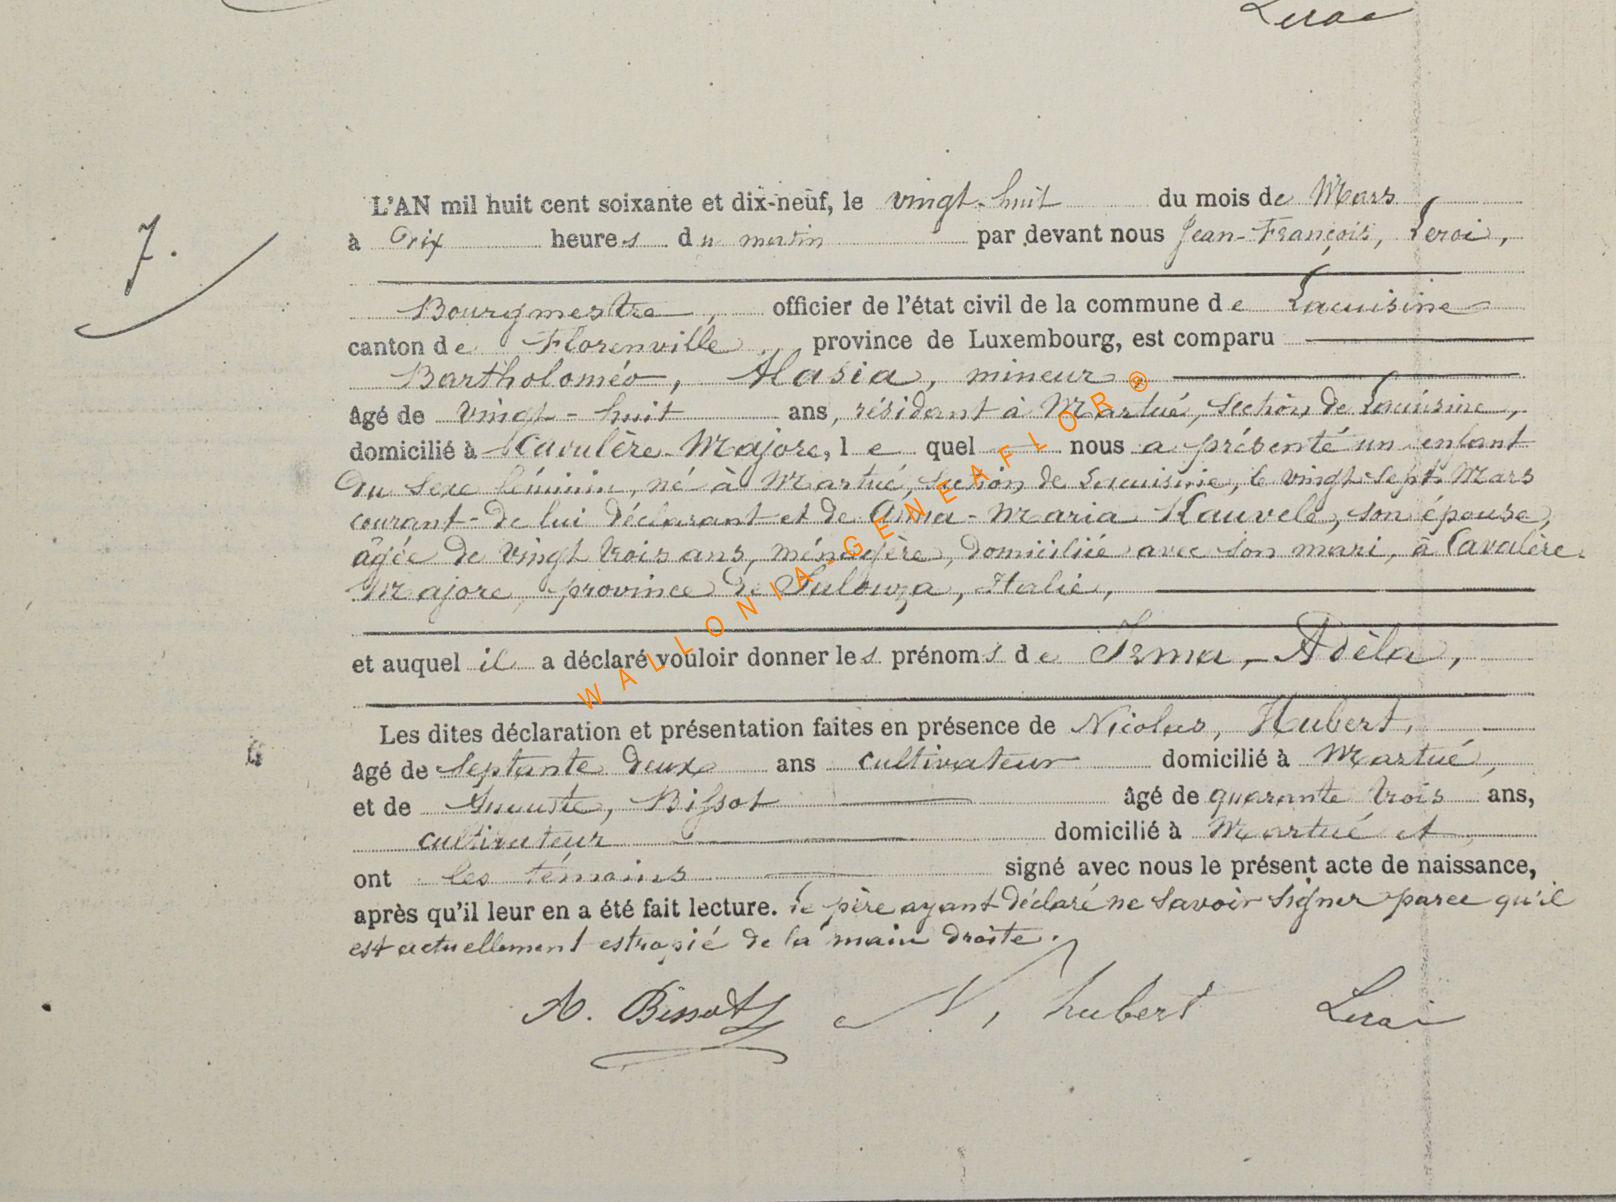 Leroi
7.
L'AN mil huit cent soixante et dix-neuf, le vingt-huit du mois de Mars
à Dix heures du matin par devant nous Jean-François, Leroi,
Bourgmestre, officier de l'état civil de la commune de Lacuisine
canton de Florenville, province de Luxembourg, est comparu
Bartholoméo, Alasia, mineur,
âgé de vingt-huit ans, résidant à Martué, section de Lacuisine,
domicilié à Kavulère-Majore, le quel nous a présenté un enfant
du sexe féminin, né à Martué, section de Lacuisine, le vingt-sept Mars
courant de lui déclarant et de Anna-Maria Kauvelo, son épouse,
âgée de vingt trois ans, ménagère, domiciliée avec son mari, à Cavalère-
Majore, province de Italie,
et auquel il a déclaré vouloir donner les prénoms de Irma, Adèla,
Les dites déclaration et présentation faites en présence de Nicolas, Hubert,
âgé de septante deux ans cultivateur domicilié à Martué,
et de Auguste, Bissot âgé de quarante trois ans,
cultivateur domicilié à Martué et
ont les témoins signé avec nous le présent acte de naissance,
après qu'il leur en a été fait lecture. Le père ayant déclaré ne savoir signer parce qu'il
est actuellement estropié de la main droite.
A. Bissot N, hubert Leroi
WALLONIA-GENEAFLOR®